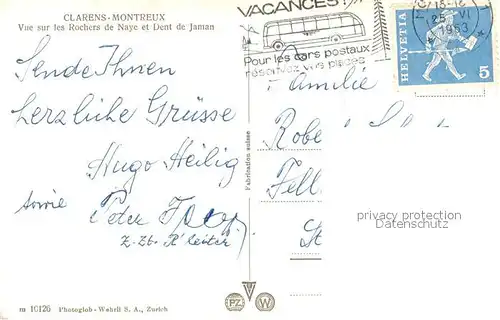 CLARENS-MONTREUX
Vue sur les Rochers de Naye et Dent de Jaman
VACANCES!
Pour les cars postaux
réservez vos places
15-18
25. VI
1963
HELVETIA
5
Sende Ihnen
herzliche Grüsse
Hugo Heilig
sowie Peter
z. Zt. Reiter
Familie
Robe
Fell
St
Fabrication suisse
privacy protection
PZ W
m 10126 Photoglob-Wehrli S. A., Zurich